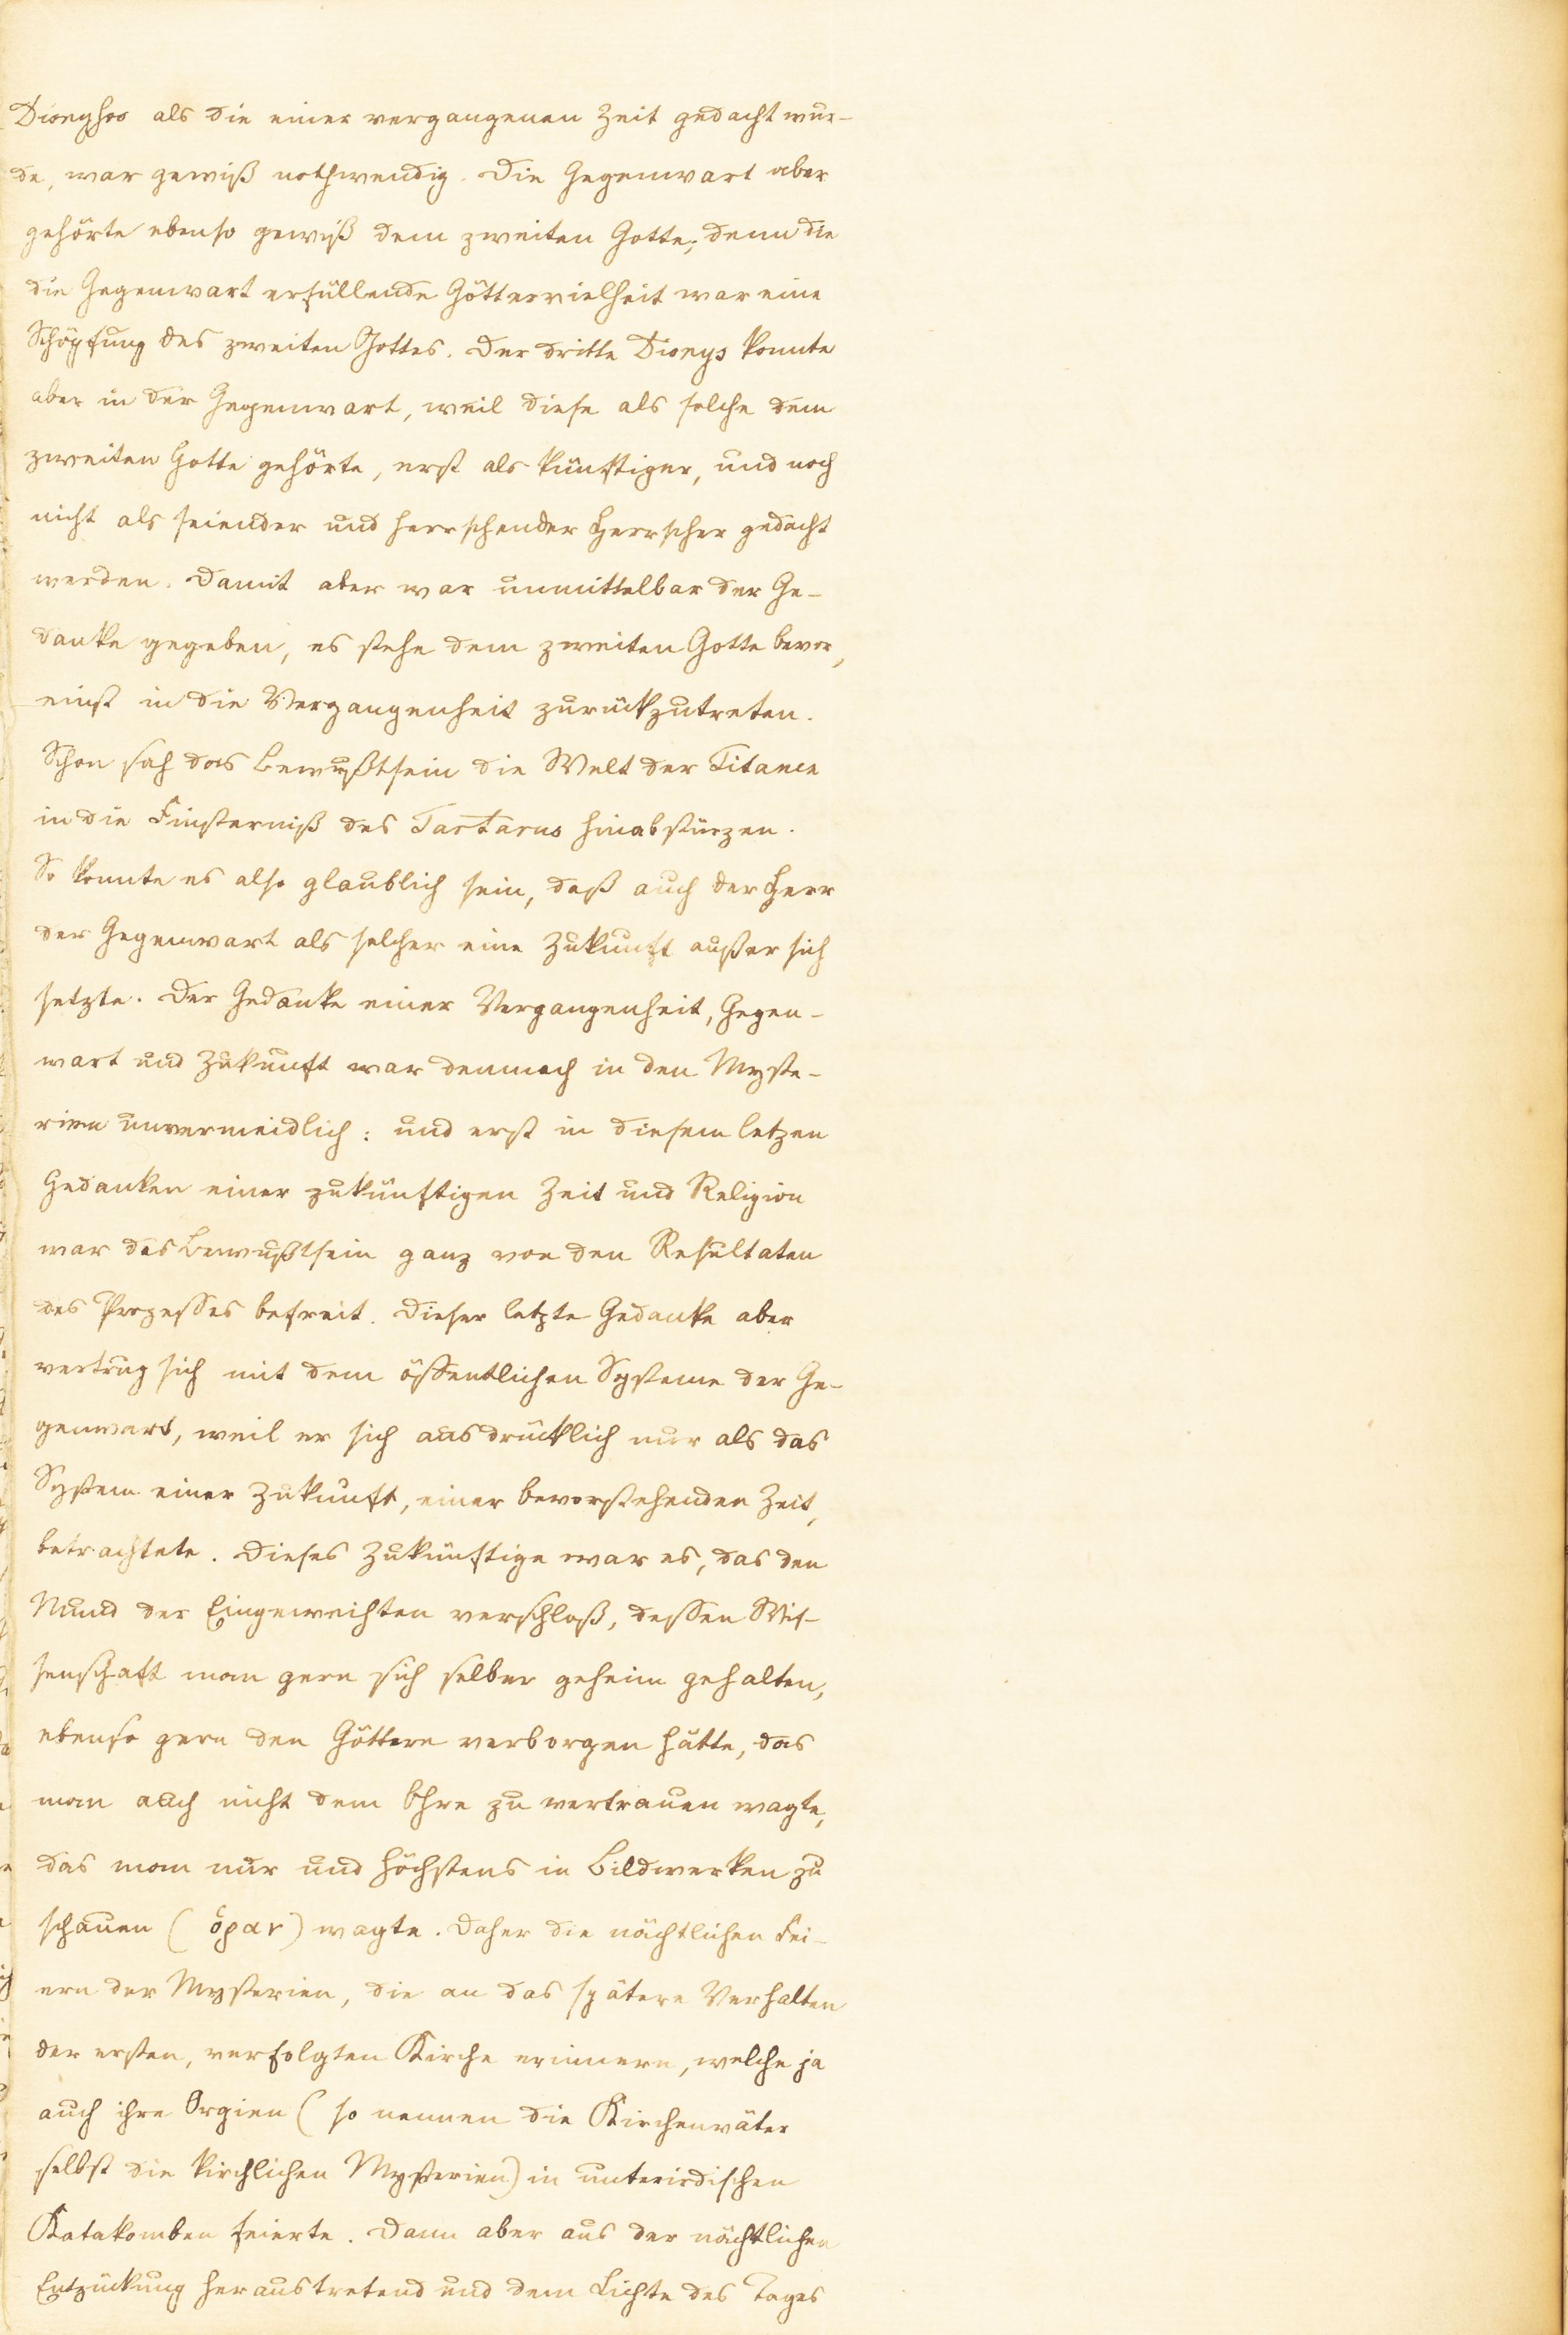 Dionysos als die einer vergangenen Zeit gedacht wur-
de, war gewiß nothwendig. Die Gegenwart aber
gehörte ebenso gewiß dem zweiten Gotte; denn die
die Gegenwart erfüllende Göttervielheit war eine
Schöpfung des zweiten Gottes. Der dritte Dionys konnte
aber in der Gegenwart, weil diese als solche dem
zweiten Gotte gehörte, erst als künftiger, und noch
nicht als seiender und herrschender Herrscher gedacht
werden. Damit aber war unmittelbar der Ge-
danke gegeben, es stehe dem zweiten Gotte bevor,
einst in die Vergangenheit zurückzutreten.
Schon sah das Bewußtsein die Welt der Titanen
in die Finsterniß des Tartarus hinabstürzen.
So konnte es also glaublich sein, daß auch der Herr
der Gegenwart als solcher eine Zukunft außer sich
setzte. Der Gedanke einer Vergangenheit, Gegen-
wart und Zukunft war demnach in den Myste-
rien unvermeidlich: und erst in diesem letzen
Gedanken einer zukünftigen Zeit und Religion
war das Bewußtsein ganz von den Resultaten
des Prozesses befreit. Dieser letzte Gedanke aber
vertrug sich mit dem öffentlichen Systeme der Ge-
genwart, weil er sich ausdrücklich nur als das
System einer Zukunft, einer bevorstehenden Zeit,
betrachtete. Dieses Zukünftige war es, das den
Mund der Eingeweihten verschloß, dessen Wis-
senschaft man gern sich selber geheim gehalten,
ebenso gern den Göttern verborgen hätte, das
man auch nicht dem Ohre zu vertrauen wagte,
das man nur und höchstens in Bildwerken zu
schauen (ὁρᾶν) wagte. Daher die nächtlichen Fei-
ern der Mysterien, die an das spätere Verhalten
der ersten, verfolgten Kirche erinnern, welche ja
auch ihre Orgien (so nennen die Kirchenväter
selbst die kirchlichen Mysterien) in unterirdischen
Katakomben feierte. Dann aber aus der nächtlichen
Entzückung heraustretend und dem Lichte des Tages